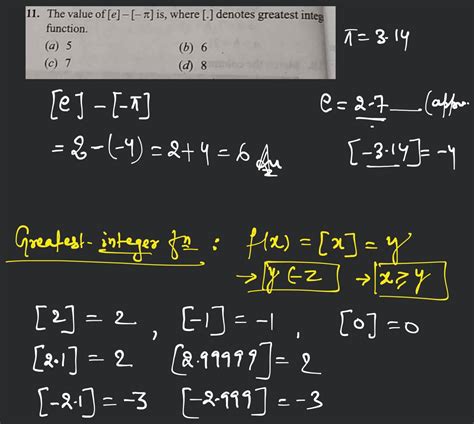 11. The value of [e]–[–π] is, where [.] denotes greatest integ
function.
(a) 5 (b) 6
(c) 7 (d) 8
π = 3.14
[e] - [-π]
= 2 - (-4) = 2 + 4 = 6 Ans
e = 2.7 (appro.
[-3.14] = -4
Greatest integer fn : f(x) = [x] = y
→ y ∈ Z → x ≥ y
[2] = 2 , [-1] = -1 , [0] = 0
[2.1] = 2 [2.99999] = 2
[-2.1] = -3 [-2.999] = -3